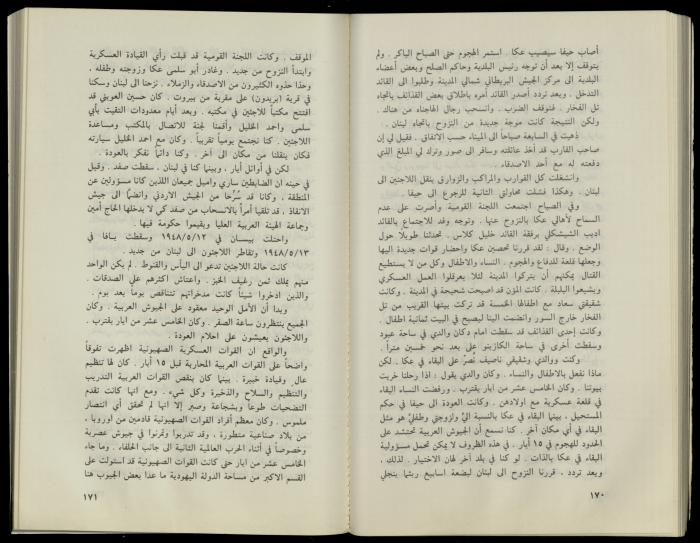 أصاب حيفا سيصيب عكا . استمر الهجوم حتى الصباح الباكر . ولم
يتوقف إلا بعد أن توجه رئيس البلدية وحاكم الصلح وبعض أعضاء
البلدية الى مركز الجيش البريطاني شمالي المدينة وطلبوا الى القائد
التدخل . وبعد تردد أصدر القائد أمره باطلاق بعض القذائف باتجاه
تل الفخار . فتوقف الضرب . وانسحب رجال الهاجناه من هناك .
ولكن النتيجة كانت موجة جديدة من النزوح باتجاه لبنان .
ذهبت في السابعة صباحاً الى الميناء حسب الاتفاق . فقيل لي إن
صاحب القارب قد أخذ عائلته وسافر الى صور وترك لي المبلغ الذي
دفعته له مع أحد الاصدقاء .
وانشغلت كل القوارب والمراكب والزوارق بنقل اللاجئين الى
لبنان . وهكذا فشلت محاولتي الثانية للرجوع الى حيفا .
وفي الصباح اجتمعت اللجنة القومية وأصرت على عدم
السماح لأهالي عكا بالنزوح عنها . وتوجه وفد للاجتماع بالقائد
اديب الشيشكلي برفقة القائد خليل كلاس . تحدثنا طويلاً حول
الوضع . وقال : لقد قررنا تحصين عكا واحضار قوات جديدة اليها
وجعلها قلعة للدفاع والهجوم . النساء والاطفال وكل من لا يستطيع
القتال يمكنهم أن يتركوا المدينة لئلا يعرقلوا العمل العسكري
ويشيعوا البلبلة . كانت المؤن قد اصبحت شحيحة في المدينة . وكانت
شقيقتي سعاد مع اطفالها الخمسة قد تركت بيتها القريب من تل
الفخار خارج السور وانضمت الينا ليصبح في البيت ثمانية اطفال .
وكانت إحدى القذائف قد سقطت امام دكان والدي في ساحة عبود
وسقطت أخرى في ساحة الكازينو على بعد نحو خمسين متراً .
وكنت ووالدي وشقيقي ناصيف نُصرّ على البقاء في عكا . لكن
ماذا نفعل بالاطفال والنساء . وكان والدي يقول : اذا رحلنا خربت
بيوتنا . وكان الخامس عشر من ايار يقترب . ورفضت النساء البقاء
في قلعة عسكرية مع اولادهن . وكانت العودة الى حيفا في حكم
المستحيل ، بينما البقاء في عكا بالنسبة اليّ ولزوجتي وطفليّ هو مثل
البقاء في أي مكان آخر . كنا نسمع أن الجيوش العربية تحتشد على
الحدود للهجوم في ١٥ أيار . في هذه الظروف لا يمكن تحمل مسؤولية
البقاء في عكا بالذات . لو كنا في بلد آخر لهان الاختيار . لذلك ،
وبعد تردد ، قررنا النزوح الى لبنان لبضعة اسابيع ريثما ينجلي
١٧٠
الموقف . وكانت اللجنة القومية قد قبلت رأي القيادة العسكرية
وابتدأ النزوح من جديد . وغادر أبو سلمى عكا وزوجته وطفله ،
وحذا حذوه الكثيرون من الاصدقاء والزملاء . نزحنا الى لبنان وسكنا
في قرية (بريدون) على مقربة من بيروت . كان حسين العويني قد
افتتح مكتباً للاجئين في مكتبه . وبعد أيام معدودات التقيت بأبي
سلمى واحمد الخليل وأقمنا لجنة للاتصال بالمكتب ومساعدة
اللاجئين . كنا نجتمع يومياً تقريباً . وكان مع احمد الخليل سيارته
فكان ينقلنا من مكان الى آخر . وكنا دائماً نفكر بالعودة .
لكن في أوائل أيار ، وبينما كنا في لبنان ، سقطت صفد . وقيل
في حينه ان الضابطين ساري واميل جميعان اللذين كانا مسؤولين عن
المنطقة ، وكانا قد سُرّحا من الجيش الاردني وانضما الى جيش
الانقاذ ، قد تلقيا أمراً بالانسحاب من صفد كي لا يدخلها الحاج أمين
وجماعة الهيئة العربية العليا ويقيموا حكومة فيها .
واحتلت بيسان في ١٩٤٨/٥/١٢ وسقطت يافا في
١٩٤٨/٥/١٣ وتقاطر اللاجئون الى لبنان من جديد .
كانت حالة اللاجئين تدعو الى اليأس والقنوط . لم يكن الواحد
منهم يملك ثمن رغيف الخبز . واعتاش اكثرهم على الصدقات .
والذين ادخروا شيئاً كانت مدخراتهم تتناقص يوماً بعد يوم .
وبدا أن الأمل الوحيد معقود على الجيوش العربية . وكان
الجميع ينتظرون ساعة الصفر . وكان الخامس عشر من ايار يقترب .
واللاجئون يعيشون على احلام العودة .
والواقع ان القوات العسكرية الصهيونية اظهرت تفوقاً
واضحاً على القوات العربية المحاربة قبل ١٥ أيار . كان لها تنظيم
عال وقيادة خبيرة . بينما كان ينقص القوات العربية التدريب
والتنظيم والسلاح والذخيرة وكل شيء . ومع انها كانت تقدم
التضحيات طوعاً وبشجاعة وصبر إلا انها لم تحقق أي انتصار
ملموس . وكان معظم أفراد القوات الصهيونية قادمين من اوروبا ،
من بلاد صناعية متطورة ، وقد تدربوا وتمرنوا في جيوش عصرية
وخصوصاً في أثناء الحرب العالمية الثانية الى جانب الحلفاء . وما جاء
الخامس عشر من ايار حتى كانت القوات الصهيونية قد استولت على
القسم الاكبر من مساحة الدولة اليهودية ما عدا بعض الجيوب هنا
١٧١